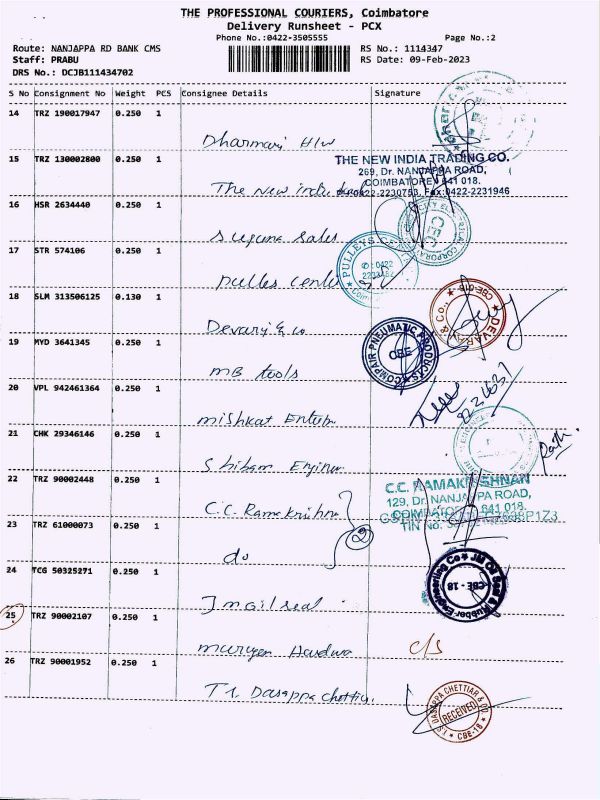 THE PROFESSIONAL COURIERS, Coimbatore
Delivery Runsheet - PCX
Phone No.:0422-3505555
Page No.:2
Route: NANJAPPA RD BANK CMS
RS No.: 1114347
Staff: PRABU
RS Date: 09-Feb-2023
DRS No.: DCJB111434702
S No Consignment No Weight PCS Consignee Details Signature
14 TRZ 190017947 0.250 1
Dharmari H/w
15 TRZ 130002800 0.250 1
THE NEW INDIA TRADING CO.
269, Dr. NANJAPPA ROAD,
COIMBATORE 641 018.
0422-2230753, Fax:0422-2231946
The New india
16 HSR 2634440 0.250 1
Suguna Sales
17 STR 574106 0.250 1
PULLEYS
0422
Pulles Center
18 SLM 313506125 0.130 1
DEVARAJ & CO., CBE-018
Devaraj & co
19 MYD 3641345 0.250 1
COMPAIR PNEUMATIC PRODUCTS
CBE
MB tools
20 VPL 942461364 0.250 1
Mishkat
21 CHK 29346146 0.250 1
22 TRZ 90002448 0.250 1
C.C. RAMAKRISHNAN
129, Dr. NANJAPPA ROAD,
COIMBATORE 641 018.
TIN No.
C.C. Ramakrishna
2
23 TRZ 61000073 0.250 1
do
24 TCG 50325271 0.250 1
JM Oil Seal & Rubber Engineering Co
CBE - 18
J m oil seal
25 TRZ 90002107 0.250 1
Murugan Hardware
c/s
26 TRZ 90001952 0.250 1
T.S. Dasappa Chettiar
T.S. DASAPPA CHETTIAR & CO
RECEIVED
CBE-18